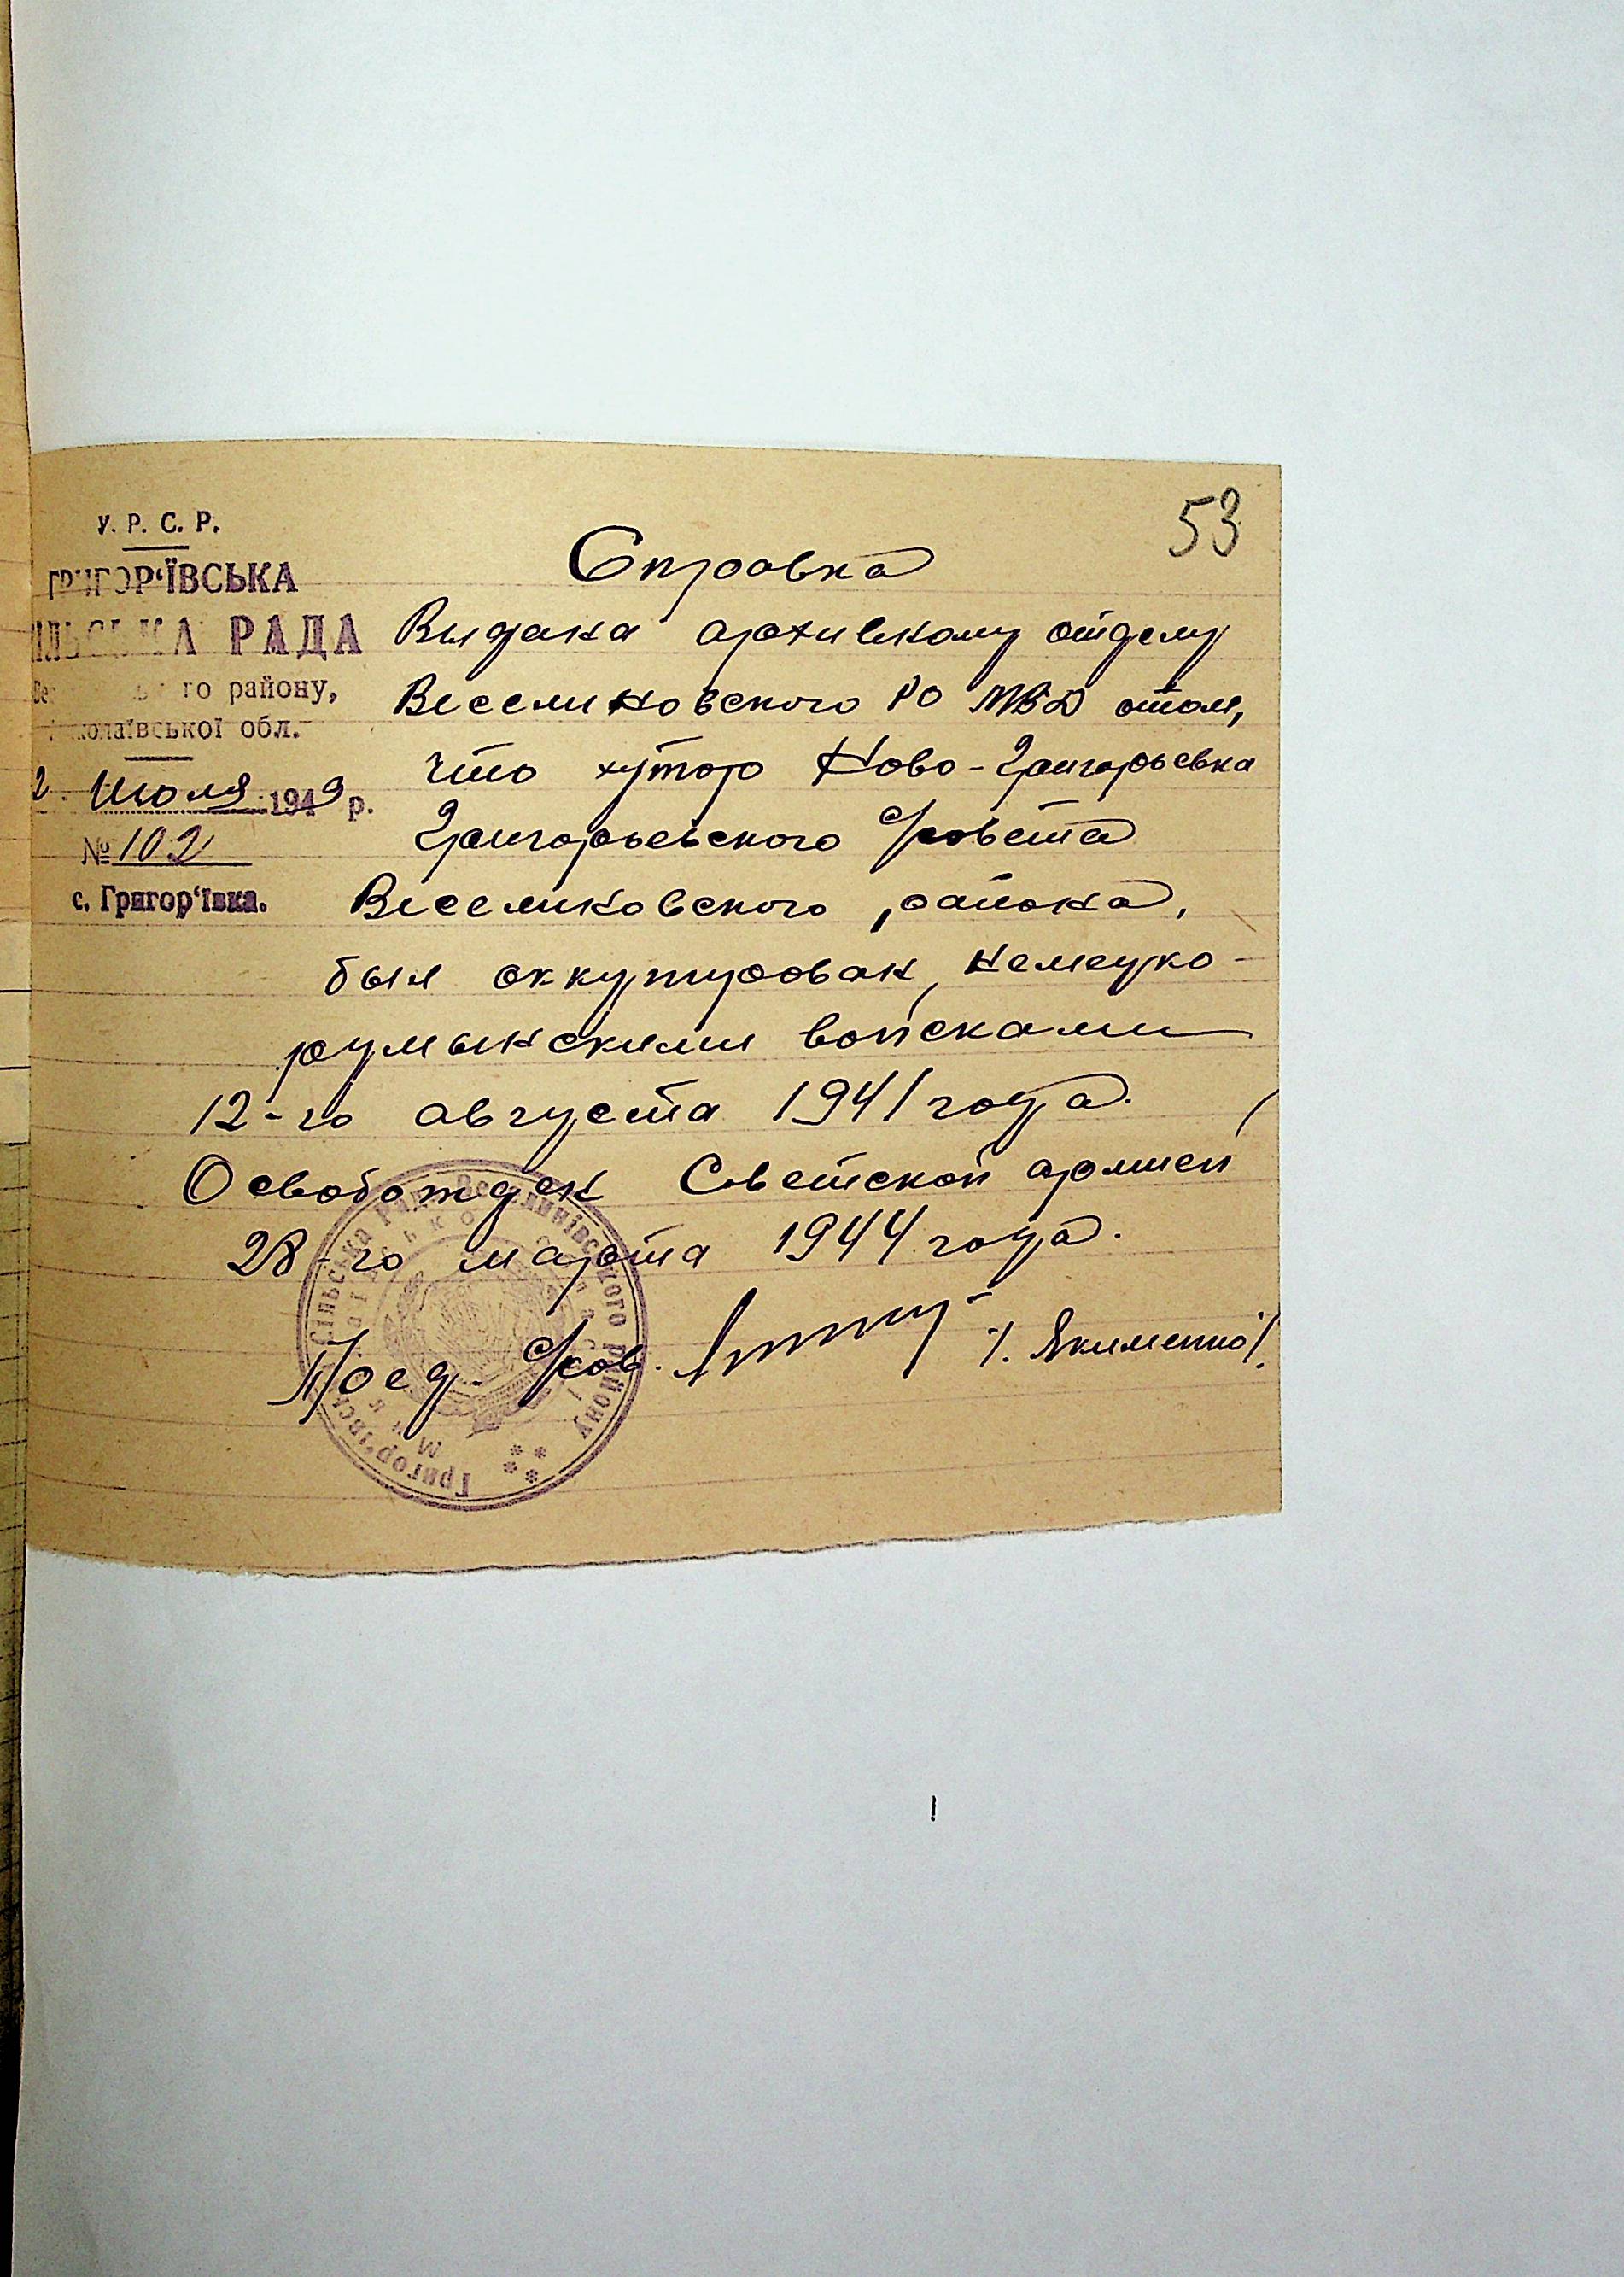 53
У. Р. С. Р.
ГРИГОР'ЇВСЬКА
РАДА
го району,
Миколаївської обл.
2. Июля 1949 р.
№ 102
с. Григор'ївка.
Справка
Выдана архивному отделу
Веселиновского РО МВД отом,
что хутор Ново-Григорьевка
Григорьевского с/совета
Веселиновского района,
был оккупирован немецко-
румынскими войсками
12-го августа 1941 года.
Освобожден Советской армией
28-го марта 1944 года.
Пред. с/сов. /. Якименко/.
Григор'ївська Сільська Рада Веселинівського району